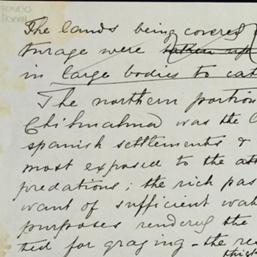 The lands being covered
turage were taken up
in large bodies to cat
The northern portion
Chihuahua was the
spanish settlements &
most exposed to the at
predations; the rich pas
want of sufficient wat
purposes rendered the
ted for grazing - the re